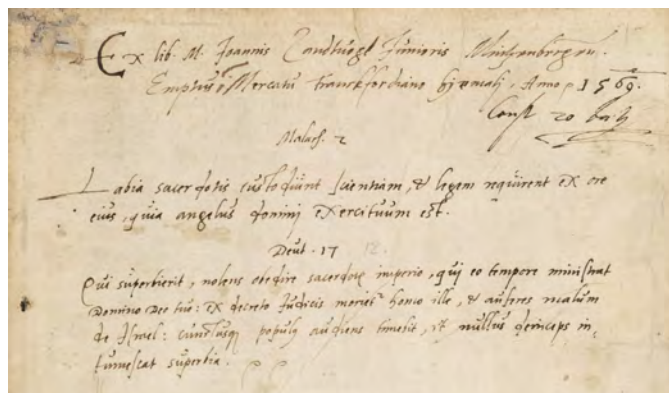 Ex lib. M. Joannis Landtvogt Junioris
Emptus i Mercatu Franckfordiano hyemali, Anno 1569.
Const 20
Malach. 2
Labia sacerdotis custodiunt scientiam, & legem requirent ex ore
eius, quia angelus domini exercituum est.
Deut. 17 12.
Qui superbierit, nolens obedire sacerdotis imperio, qui eo tempore ministrat
Domino Deo tuo: ex decreto Judicis morietr homo ille, & auferes malum
de Israel: cunctusq populus audiens timebit, ut nullus deinceps in
tumescat superbia.